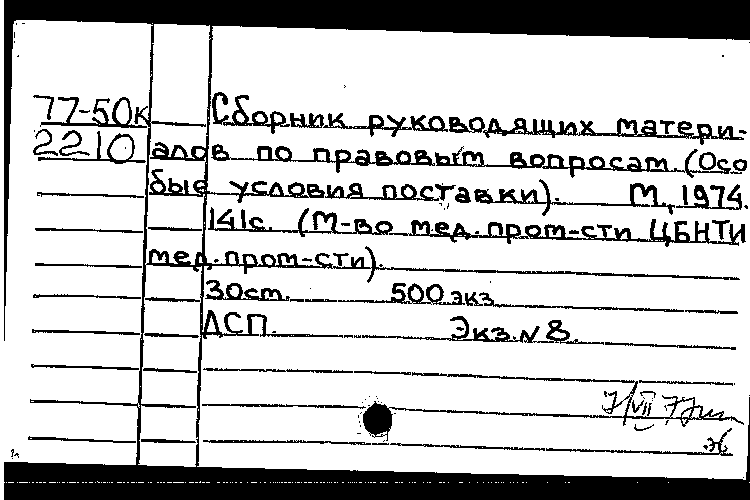 77-50к Сборник руководящих матери-
2210 алов по правовым вопросам. (Осо
бые условия поставки). М., 1974.
141с. (М-во мед. пром-сти ЦБНТИ
мед. пром-сти).
30 ст. 500 экз
ДСП. Экз. N 8.